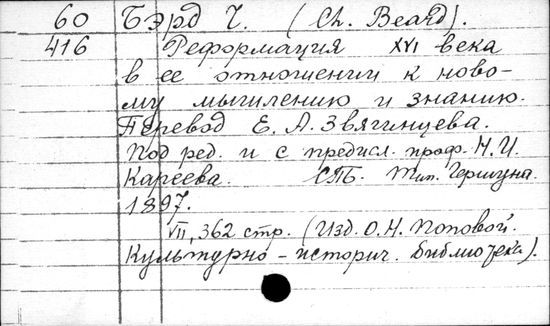 60 Бэрд Ч. (Ch. Beard).
416 Реформация XVI века
в ее отношении к ново-
му мышлению и знанию.
Перевод Е. А. Звягинцева.
Под ред. и с предисл. проф. Н. И.
Кареева. СПБ. Тип. Гершуна.
1897.
VII, 362 стр. (Изд. О. Н. Поповой.
Культурно-историч. библиотека).